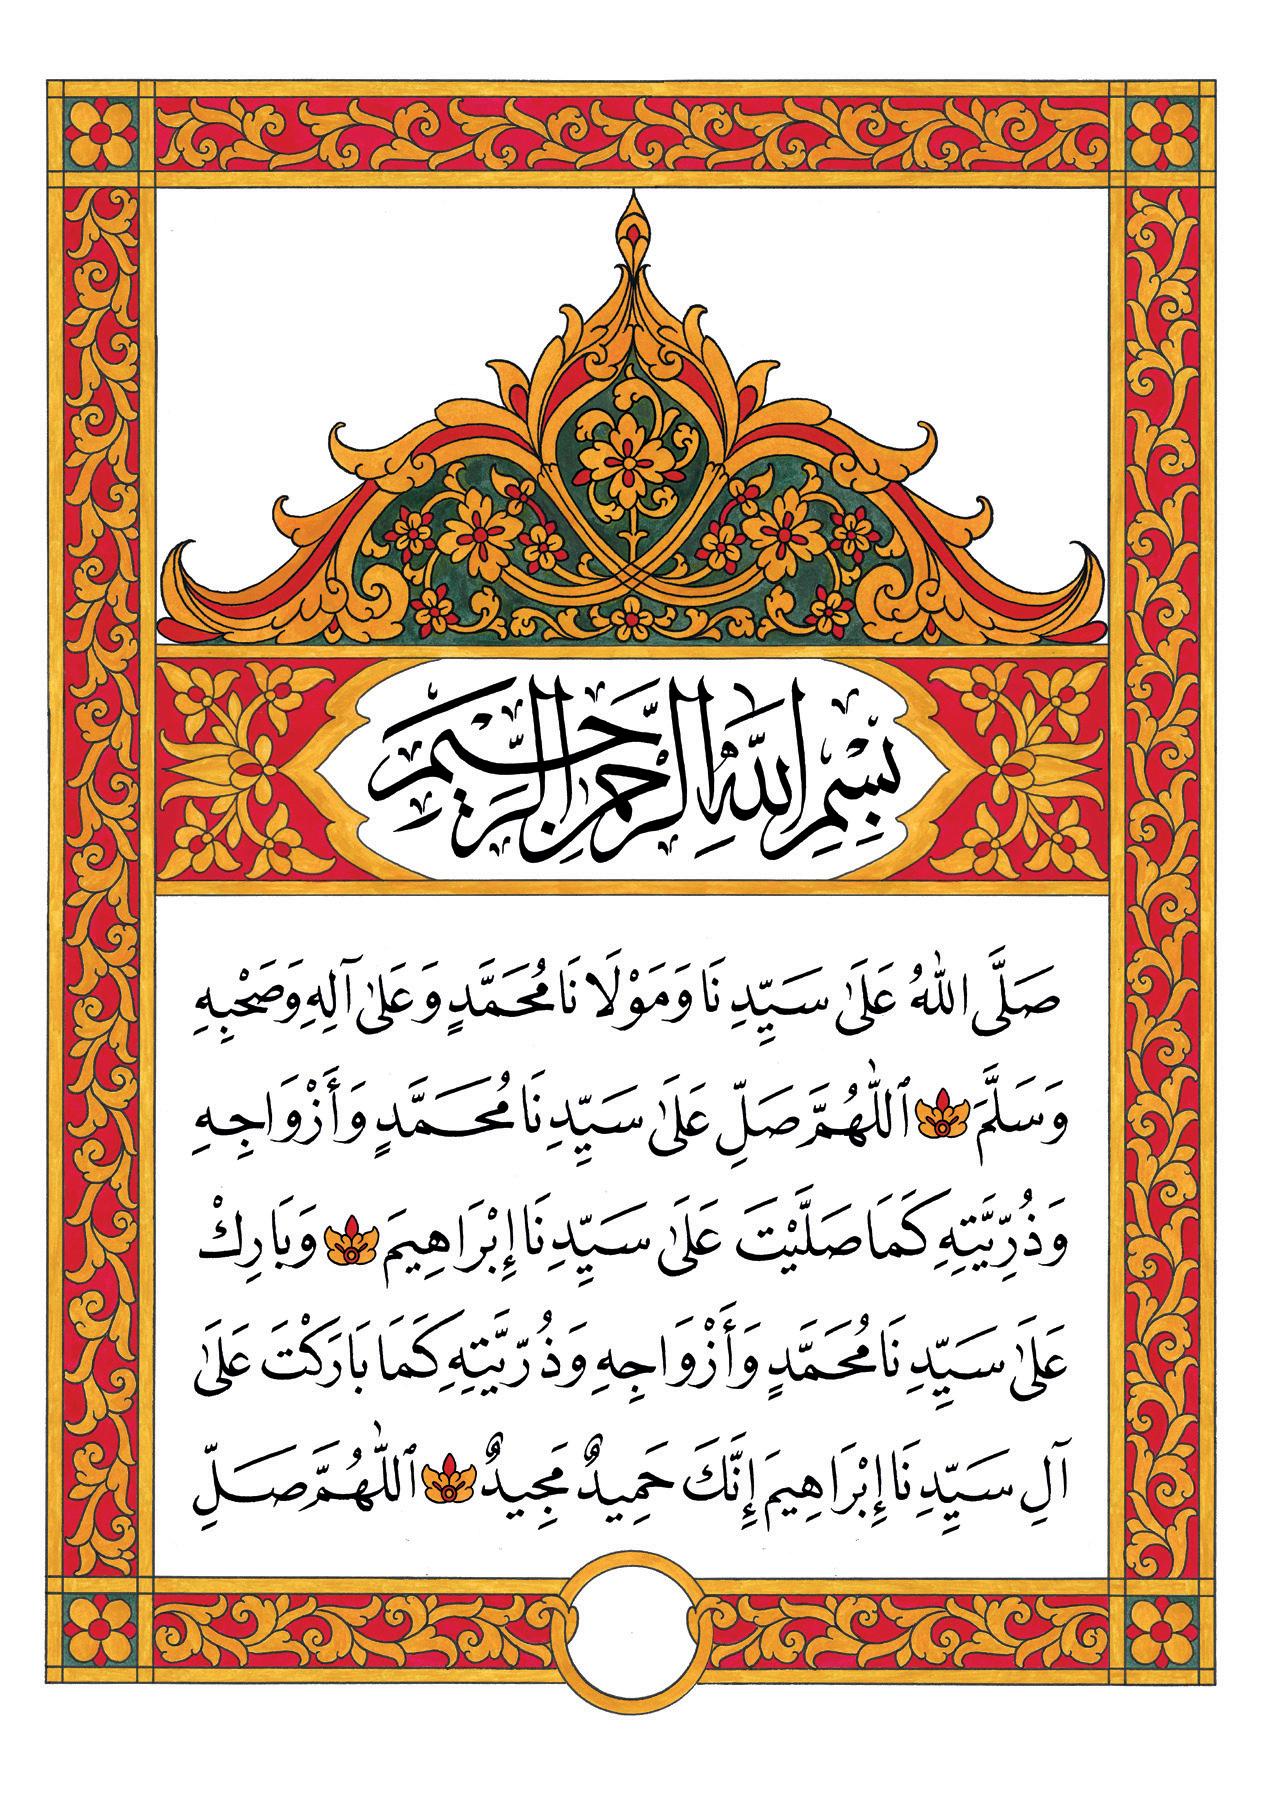 بِسْمِ اللَّهِ الرَّحْمٰنِ الرَّحِيمِ
صَلَّى اللّٰهُ عَلَىٰ سَيِّدِنَا وَمَوْلَانَا مُحَمَّدٍ وَعَلَىٰ آلِهِ وَصَحْبِهِ
وَسَلَّمَ ٱللّٰهُمَّ صَلِّ عَلَىٰ سَيِّدِنَا مُحَمَّدٍ وَأَزْوَاجِهِ
وَذُرِّيَّتِهِ كَمَا صَلَّيْتَ عَلَىٰ سَيِّدِنَا إِبْرَاهِيمَ وَبَارِكْ
عَلَىٰ سَيِّدِنَا مُحَمَّدٍ وَأَزْوَاجِهِ وَذُرِّيَّتِهِ كَمَا بَارَكْتَ عَلَىٰ
آلِ سَيِّدِنَا إِبْرَاهِيمَ إِنَّكَ حَمِيدٌ مَجِيدٌ ٱللّٰهُمَّ صَلِّ